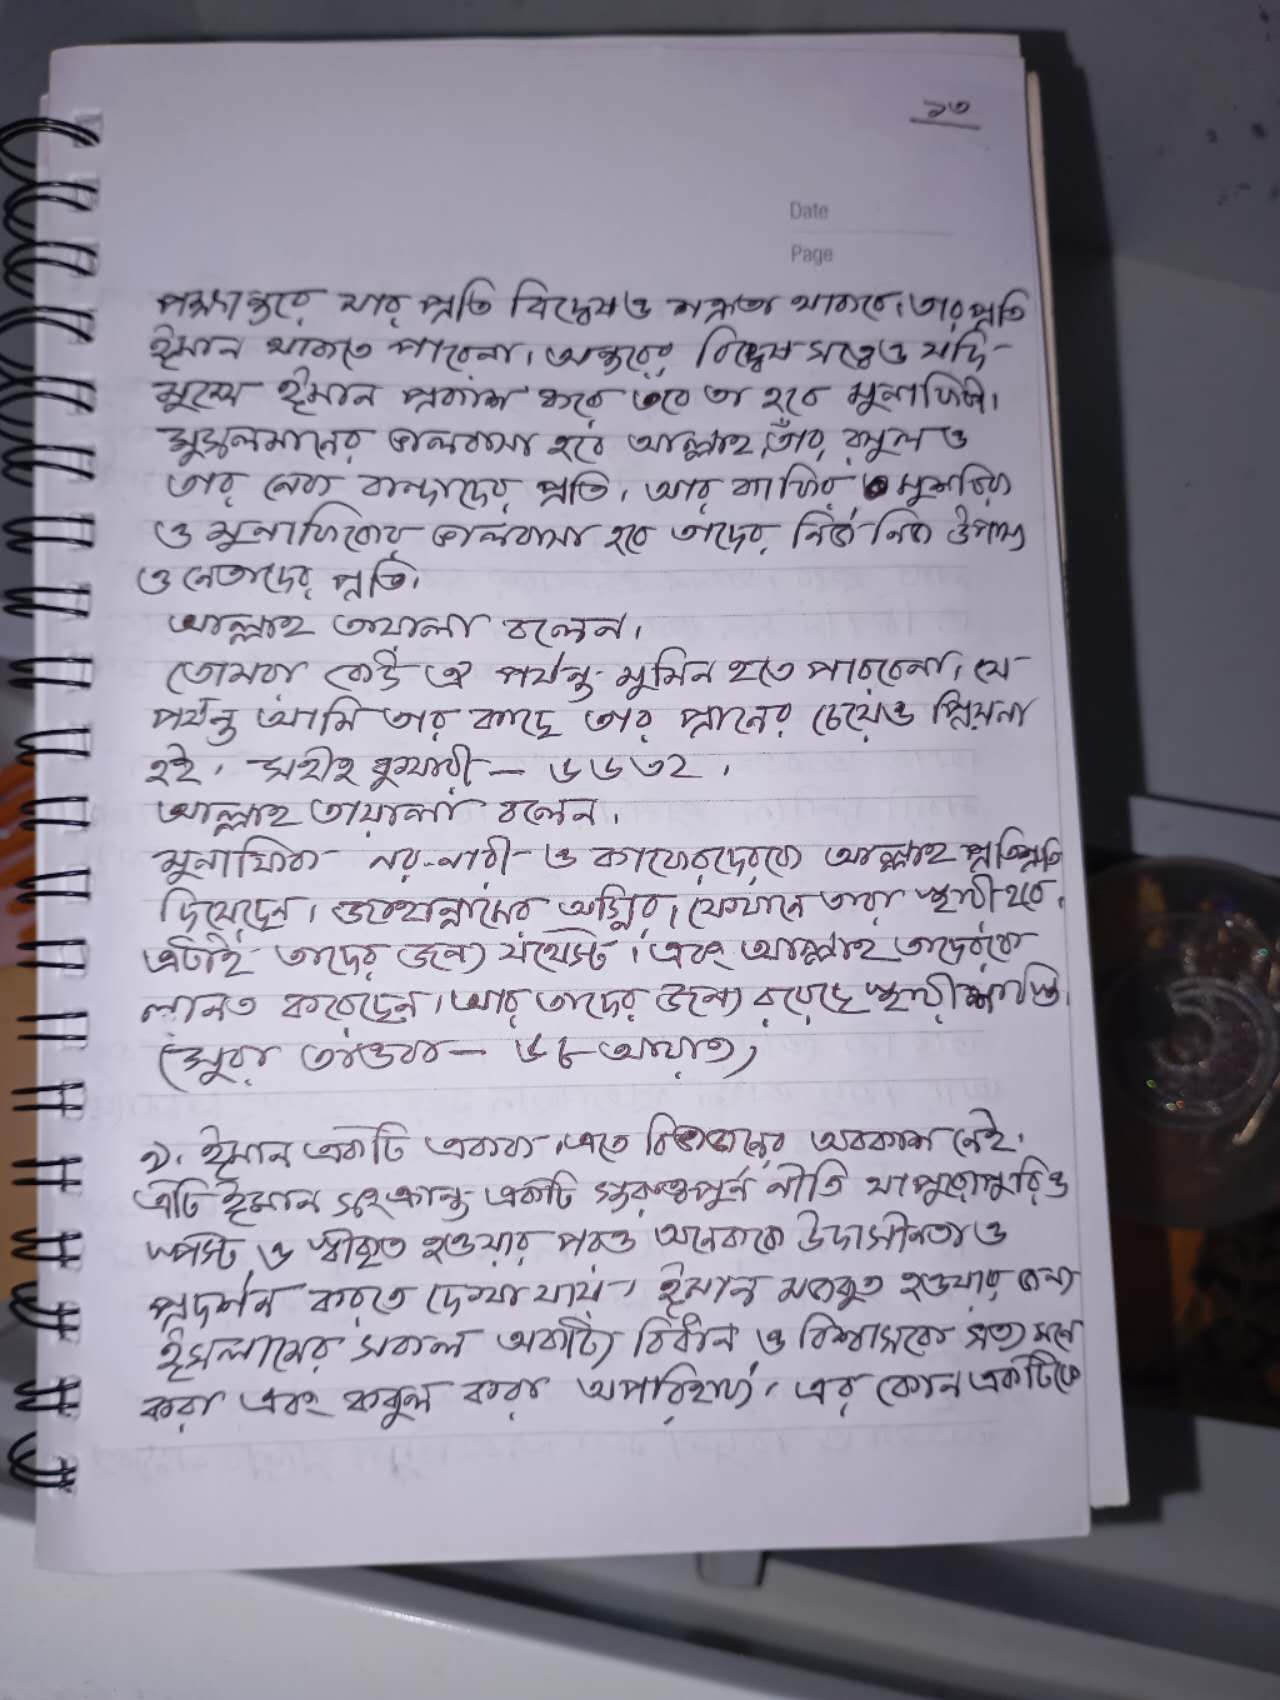 ১৩
Date
Page
পক্ষান্তরে যার প্রতি বিদ্বেষ ও শত্রুতা থাকবে। তার প্রতি
ঈমান থাকতে পারেনা। অন্তরের বিদ্বেষ সত্ত্বেও যদি-
মুখে ঈমান প্রকাশ করে তবে তা হবে মুনাফিকী।
মুসলমানের ভালবাসা হবে আল্লাহ, তাঁর রসুল ও
তার নেক বান্দাদের প্রতি। আর কাফির মুশরিক
ও মুনাফিকের ভালবাসা হবে তাদের নিজ নিজ উপাস্য
ও নেতাদের প্রতি।
আল্লাহ তাযালা বলেন।
তোমরা কেউ ঐ পর্যন্ত মুমিন হতে পারবেনা। যে-
পর্যন্ত আমি তার কাছে তার প্রানের চেয়েও প্রিয়না
হই। সহীহ বুখারী - ৬৬৩২।
আল্লাহ তায়ালা বলেন।
মুনাফিক নর-নারী ও কাফেরদেরকে আল্লাহ প্রতিশ্রুতি
দিয়েছেন। জাহান্নামের অগ্নির। যেখানে তারা স্থায়ী হবে।
এটাই তাদের জন্যে যথেস্ট। এবং আল্লাহ তাদেরকে
লানত করেছেন। আর তাদের জন্যে রয়েছে স্থায়ী শাস্তি।
(সুরা তাওবা - ৬৮ আয়াত)
৯। ঈমান একটি একক। এতে বিভাজনের অবকাশ নেই।
এটি ঈমান সংক্রান্ত একটি গুরুত্বপূর্ন নীতি যা পুরোপুরিও
স্পস্ট ও স্বীকৃত হওযার পরও অনেককে উদাসীনতাও
প্রদর্শন করতে দেখা যায়। ঈমান মজবুত হওযার জন্য
ইসলামের সকল অকাট্য বিধান ও বিশ্বাসকে সত্য মনে
করা এবং কবুল করা অপরিহার্য। এর কোন একটিকে